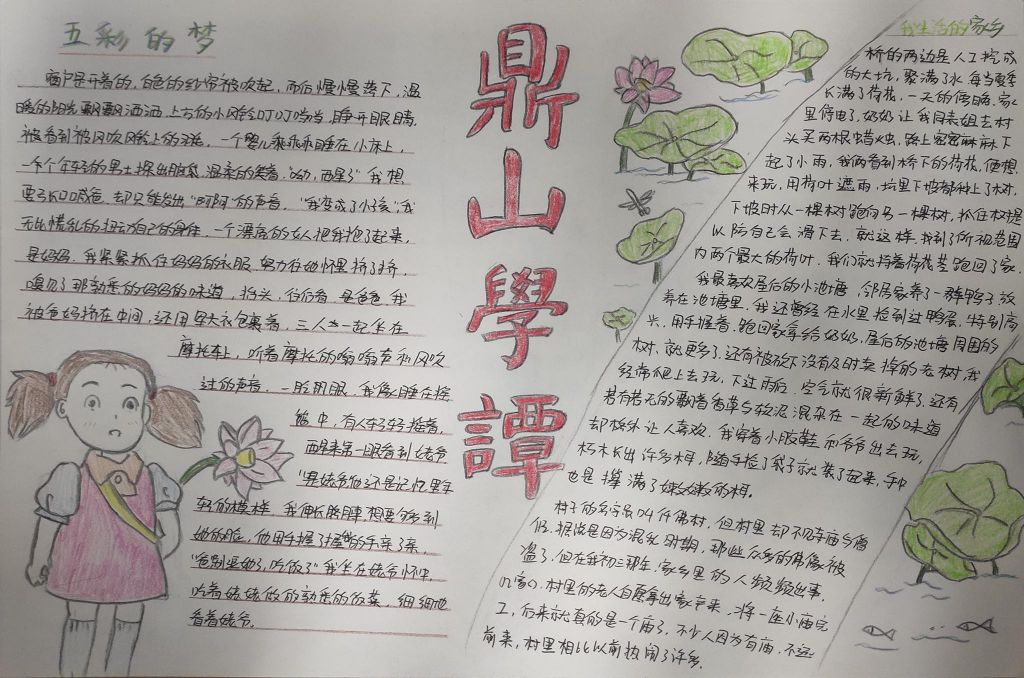 五彩的梦
窗户是开着的,白色的纱帘被吹起,而后慢慢落下,温
暖的阳光飘飘洒洒,上方的小风铃叮叮当当,睁开眼睛,
被看到被风吹风铃上的羽毛,一个婴儿乖乖乖睡在小床上,
一个年轻的男士探出脑袋,温柔的笑着,
要张口喊爸,却只能发出“啊啊”的声音,“我变成了小孩”,我
无比慌乱的扭动自己的身体,一个漂亮的女人把我抱了起来,
是妈妈,我紧紧抓住妈妈的衣服,努力往她怀里挤了挤,
嗅见了那熟悉的妈妈的味道,抬头,往后看,是爸爸,我
被爸妈挤在中间,还用军大衣包裹着,三人一起坐在
摩托车上,听着摩托的嗡嗡声和风吹
过的声音,一睁眼,我像睡在摇
篮中,有人轻轻摇着,
第一眼看到姥爷
姥爷他还是记忆里年
轻的模样,我伸长胳膊,想要够到
她的脸,他用手握了握我的手亲了亲,
吃饭了”我坐在姥爷怀中,
吃着姥姥做的熟悉的饭菜,细细地
看着姥爷。
鼎
山
學
譚
我生活的家乡
桥的两边是人工挖成
的大坑,聚满了水,每当夏季
长满了荷花,一天的傍晚,家
里停电了,奶奶让我同表姐去村
头买两根蜡烛,路上密密麻麻下
起了小雨,我俩看到桥下的荷花,便想
来玩,用荷叶遮雨,坑里下坡都种上了树,
下坡时从一棵树跑向另一棵树,抓住树提
以防自己会滑下去,就这样,我到了所视范围
内两个最大的荷叶,我们就持着荷花茎跑回了家。
我最喜欢屋后的小池塘,邻居家养了一群鸭子放
养在池塘里,我还曾经在水里捡到过鸭蛋,特别高
兴,用手握着,跑回家拿给奶奶,屋后的池塘周围的
树,就更多了,还有被砍下没有及时卖掉的老树,我
经常爬上去玩,下过雨后,空气就很新鲜了,还有
若有若无的飘着香草与软泥混杂在一起的味道
却格外让人喜欢,我穿着小胶鞋和爷爷出去玩,
朽木长出许多木耳,随手捡了袋子就装了起来,手中
也是攥满了嫩嫩的木耳。
村子的名字叫仟佛村,但村里却不见寺庙与僧
侣,据说是因为混乱时期,那些众多的佛像被
但在我初三那年,家乡里的人频频出事,
村里的老人自愿拿出家产来,将一座小庙完
工,后来就真的是一个庙了,不少人因为有庙,不远
前来,村里相比以前热闹了许多。